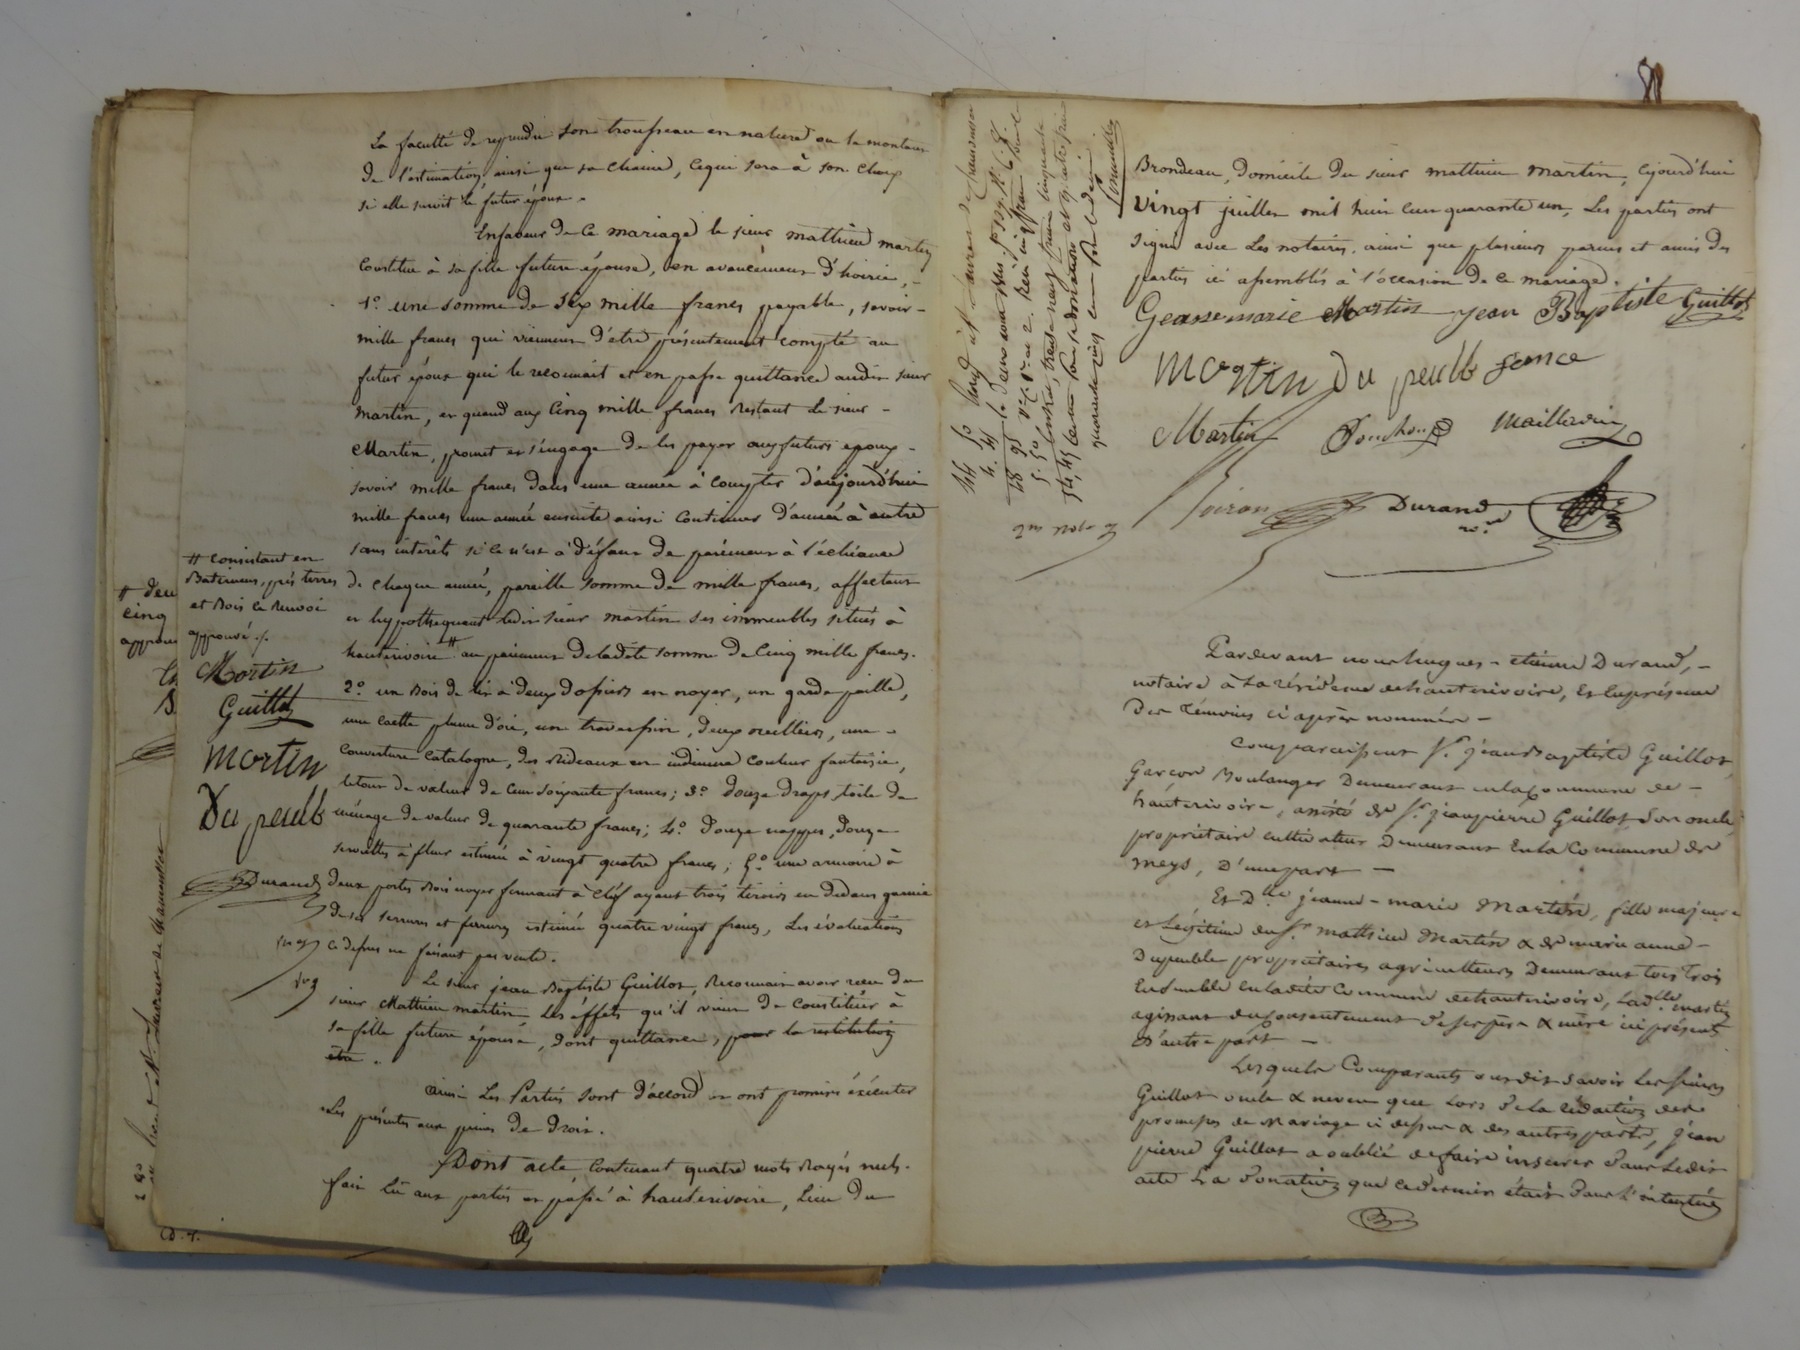 La faculté de reprendre son trousseau en nature ou le montant
de l'estimation, ainsi que sa chaine, ce qui sera à son choix
si elle survit le futur époux.
En faveur de ce mariage le sieur mathieu martin
constitue à sa fille future épouse, en avancement d'hoirie,
1º une somme de six mille francs payable, savoir -
mille francs qui viennent d'être présentement compté au
futur époux qui le reconnait et en passe quittance audit sieur
Martin, et quand aux cinq mille francs restant le sieur -
Martin, promet et s'engage de les payer aux futurs epoux -
savoir mille francs dans une année à compter d'aujourd'hui
mille francs une année ensuite ainsi continuer d'année à autre
sans intérêts si ce n'est à défaut de paiement à l'échéance
de chaque année, pareille somme de mille francs, affectant
et hypothequant ledit sieur martin ses immeubles situés à
hauterivoire # au paiement de ladite somme de cinq mille francs.
2º un Bois de lit à deux dossiers en noyer, un garde paille,
une coette plume d'oie, un traversin, deux oreillers, une -
couverture catalogne, des rideaux en indienne couleur fantaisie,
le tout de valeur de cent soixante francs; 3º douze draps toile de
ménage de valeur de quarante francs; 4º douze nappes, douze
serviettes à fleur estimé à vingt quatre francs; 5º une armoire à
deux portes Bois noyer fermant à cléf ayant trois tiroirs en dedans garnie
de ses serrures et ferrures estimée quatre vingt francs, Les évaluations
ci dessus ne faisant pas vente.
Le sieur jean Baptiste Guillot, Reconnait avoir recu du
sieur Mathieu martin les effets qu'il vient de constituer à
sa fille future épouse, dont quittance, pour la restitution
etre.
ainsi Les Parties sont d'accord et ont promis éxécuter
Les présentes aux peines de Droit.
Dont acte, contenant quatre mots Rayés nuls.
fait lû aux parties et passé à hauterivoire, Lieu du
# consistant en
Batiments, prés terres
et Bois ce Renvoi
approuvé ./.
Martin
Guillot
Martin
Du peuble
Durand
# deu
cinq
approu
Brondeau, Domicile du sieur mathieu Martin, cejourd'hui
Vingt juillet mil huit cent quarante un, Les parties ont
signé avec Les notaires. ainsi que plusieurs parents et amis des
parties ici assemblés à l'occasion de ce mariage.
Geanne marie Martin jean Baptiste Guillot
Martin Du peuble
Martin
Durand
nre
Pardevant nous hugues - etienne Durand, -
notaire à La résidence de hauterivoire, Et En présence
Des témoins ci après nommés -
Comparaissent Sr. jean Baptiste Guillot,
Garcon Boulanger Demeurant en la commune de -
hauterivoire, assisté de Sr. jean pierre Guillot son oncle,
propriétaire cultivateur Demeurant En la Commune de
meys, D'une part -
Et Dlle jeanne - marie Martin, fille majeure
et Légitime du Sr. mathieu Martin & de marie anne -
Dupeuble propriétaires agriculteurs Demeurant tous trois
Ensemble en ladite Commune de hauterivoire, Ladlle. martin
agissant du consentement de ses père & mère ici présents
D'autre part -
Lesquels Comparants ont dit savoir les sieurs
Guillot oncle & neveu que Lors de La rédaction des
promesses de Mariage ci dessus & des autres parts, jean
pierre Guillot a oublié de faire insérer dans Ledit
acte La Donation que ce dernier était dans l'intention